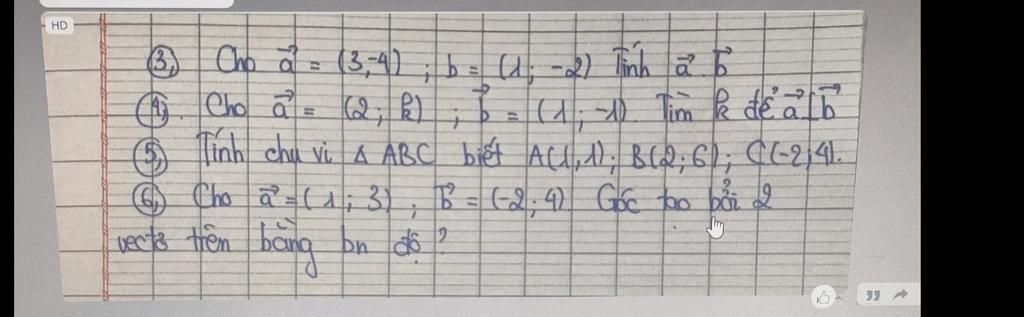 HD
③ Cho a⃗ = (3,-4) ; b = (1; -2) Tính a⃗. b⃗
④. Cho a⃗ = (2; k) ; b⃗ = (1; -1). Tìm k để a⃗ ⊥ b⃗
⑤ Tính chu vi Δ ABC biết A(1,1); B(2; 6); C(-2; 4).
⑥ Cho a⃗ = (1; 3) ; b⃗ = (-2; 4) Góc tạo bởi 2
vectơ trên bằng bn độ ?